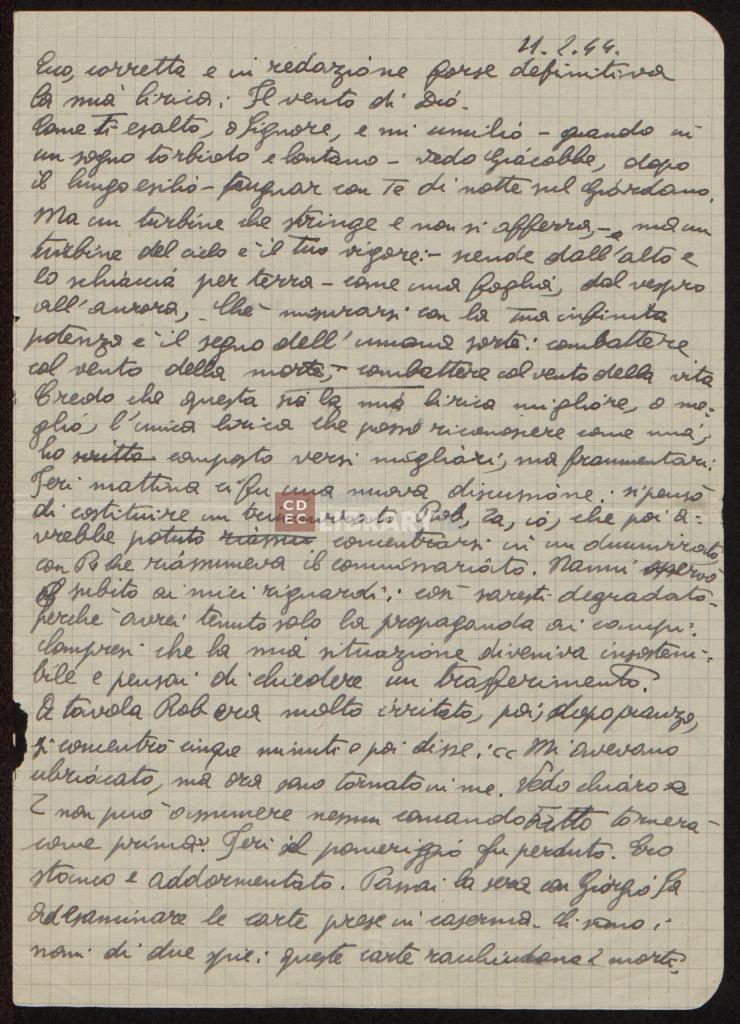 11.2.44.
Ecco, corretta e in redazione forse definitiva
la mia lirica: Il vento di Dio.
Come ti esalto, o Signore, e mi umilio – quando in
un sogno torbido e lontano – vedo Giacobbe, dopo
il lungo esilio – pugnar con Te di notte sul Giordano.
Ma un turbine che stringe e non si afferra, – ma un
turbine del cielo è il tuo vigore: – scende dall'alto e
lo schiaccia per terra – come una foglia, dal vespro
all'aurora, – Chè misurarsi con la tua infinita
potenza è il segno dell'umana sorte: combattere
col vento della morte, – combattere col vento della vita
Credo che questa sia la mia lirica migliore, o me-
glio, l'unica lirica che posso riconoscere come mia,
ho scritto composto versi migliori, ma frammentari.
Ieri mattina ci fu una nuova discussione: si pensò
di costituire un triumvirato Rob, Za, io, che poi a-
vrebbe potuto concentrarsi in un duumvirato,
con Rob che riassumeva il commissariato. Nanni osservò
subito ai miei riguardi: così saresti degradato –
perchè avrei tenuto solo la propaganda ai campi.
Compresi che la mia situazione diveniva insosteni-
bile e pensai di chiedere un trasferimento.
A tavola Rob era molto irritato, poi, dopopranzo,
si concentrò cinque minuti e poi disse: "Mi avevano
ubriacato, ma ora sono tornato in me. Vedo chiaro e
Z non può assumere nessun comando. Tutto tornerà
come prima". Ieri il pomeriggio fu perduto. Ero
stanco e addormentato. Passai la sera con Giorgio
ad esaminare le carte prese in caserma. Ci sono i
nomi di due spie: queste carte racchiudono 2 morti.
CD
EC LIBRARY